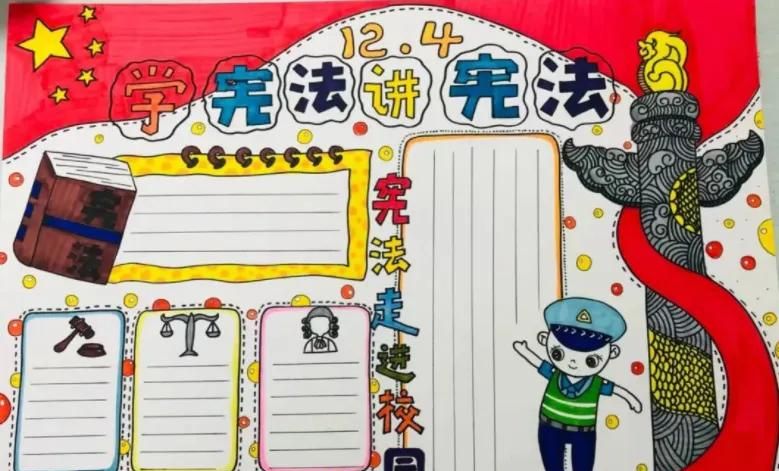 12.4
学宪法讲宪法
宪法
宪法走进校园